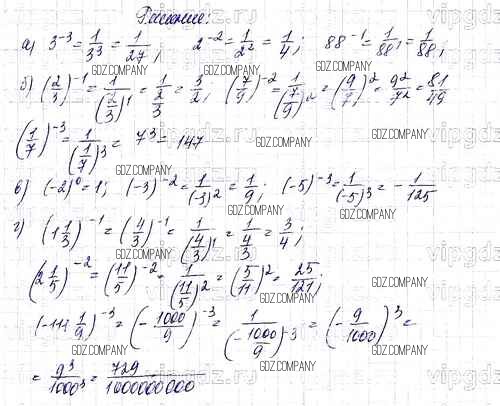 Решение:
а) 3⁻³ = 1/3³ = 1/27; 2⁻² = 1/2² = 1/4; 88⁻¹ = 1/88¹ = 1/88;
б) (2/3)⁻¹ = 1/(2/3)¹ = 1/(2/3) = 3/2; (7/9)⁻² = 1/(7/9)² = (9/7)² = 9²/7² = 81/49
(1/7)⁻³ = 1/(1/7)³ = 7³ = 147
в) (-2)⁰ = 1; (-3)⁻² = 1/(-3)² = 1/9; (-5)⁻³ = 1/(-5)³ = -1/125
г) (1 1/3)⁻¹ = (4/3)⁻¹ = 1/(4/3)¹ = 1/(4/3) = 3/4;
(2 1/5)⁻² = (11/5)⁻² = 1/(11/5)² = (5/11)² = 25/121;
(-111 1/9)⁻³ = (-1000/9)⁻³ = 1/(-1000/9)⁻³ = (-9/1000)³ =
= 9³/1000³ = 729/1000000000
GDZ.COMPANY
vipgdz.ru